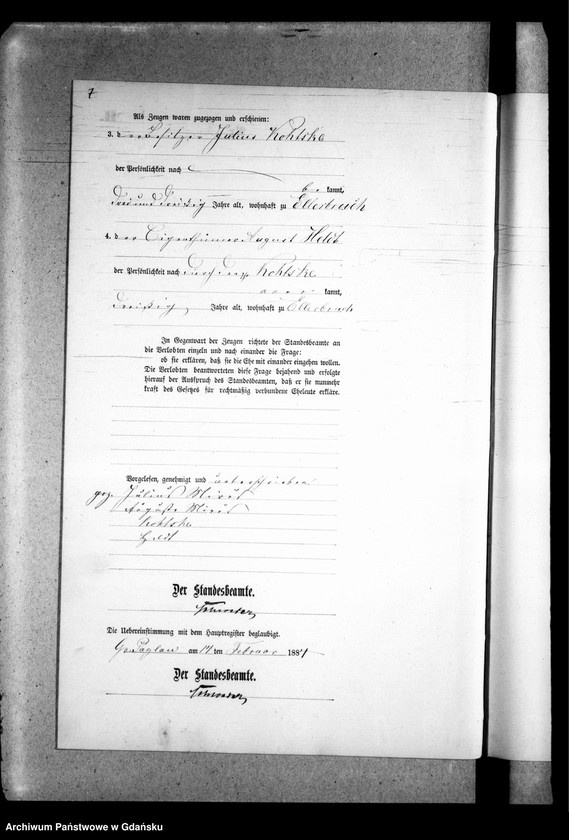 7
Als Zeugen waren zugezogen und erschienen:
3. der Besitzer Julius Kohtske
der Persönlichkeit nach
be kannt,
dreiunddreißig Jahre alt, wohnhaft zu Ellerbruch
4. der Eigenthümer August Heldt
der Persönlichkeit nach durch den p. Kohtske
kannt,
dreißig Jahre alt, wohnhaft zu Ellerbruch
In Gegenwart der Zeugen richtete der Standesbeamte an
die Verlobten einzeln und nach einander die Frage:
ob sie erklären, daß sie die Ehe mit einander eingehen wollen.
Die Verlobten beantworteten diese Frage bejahend und erfolgte
hierauf der Ausspruch des Standesbeamten, daß er sie nunmehr
kraft des Gesetzes für rechtmäßig verbundene Eheleute erkläre.
Vorgelesen, genehmigt und unterschrieben
gez. Julius
Auguste
Kohtske
Heldt
Der Standesbeamte.
Die Uebereinstimmung mit dem Hauptregister beglaubigt.
am 14 ten Februar 188
Der Standesbeamte.
Archiwum Państwowe w Gdańsku